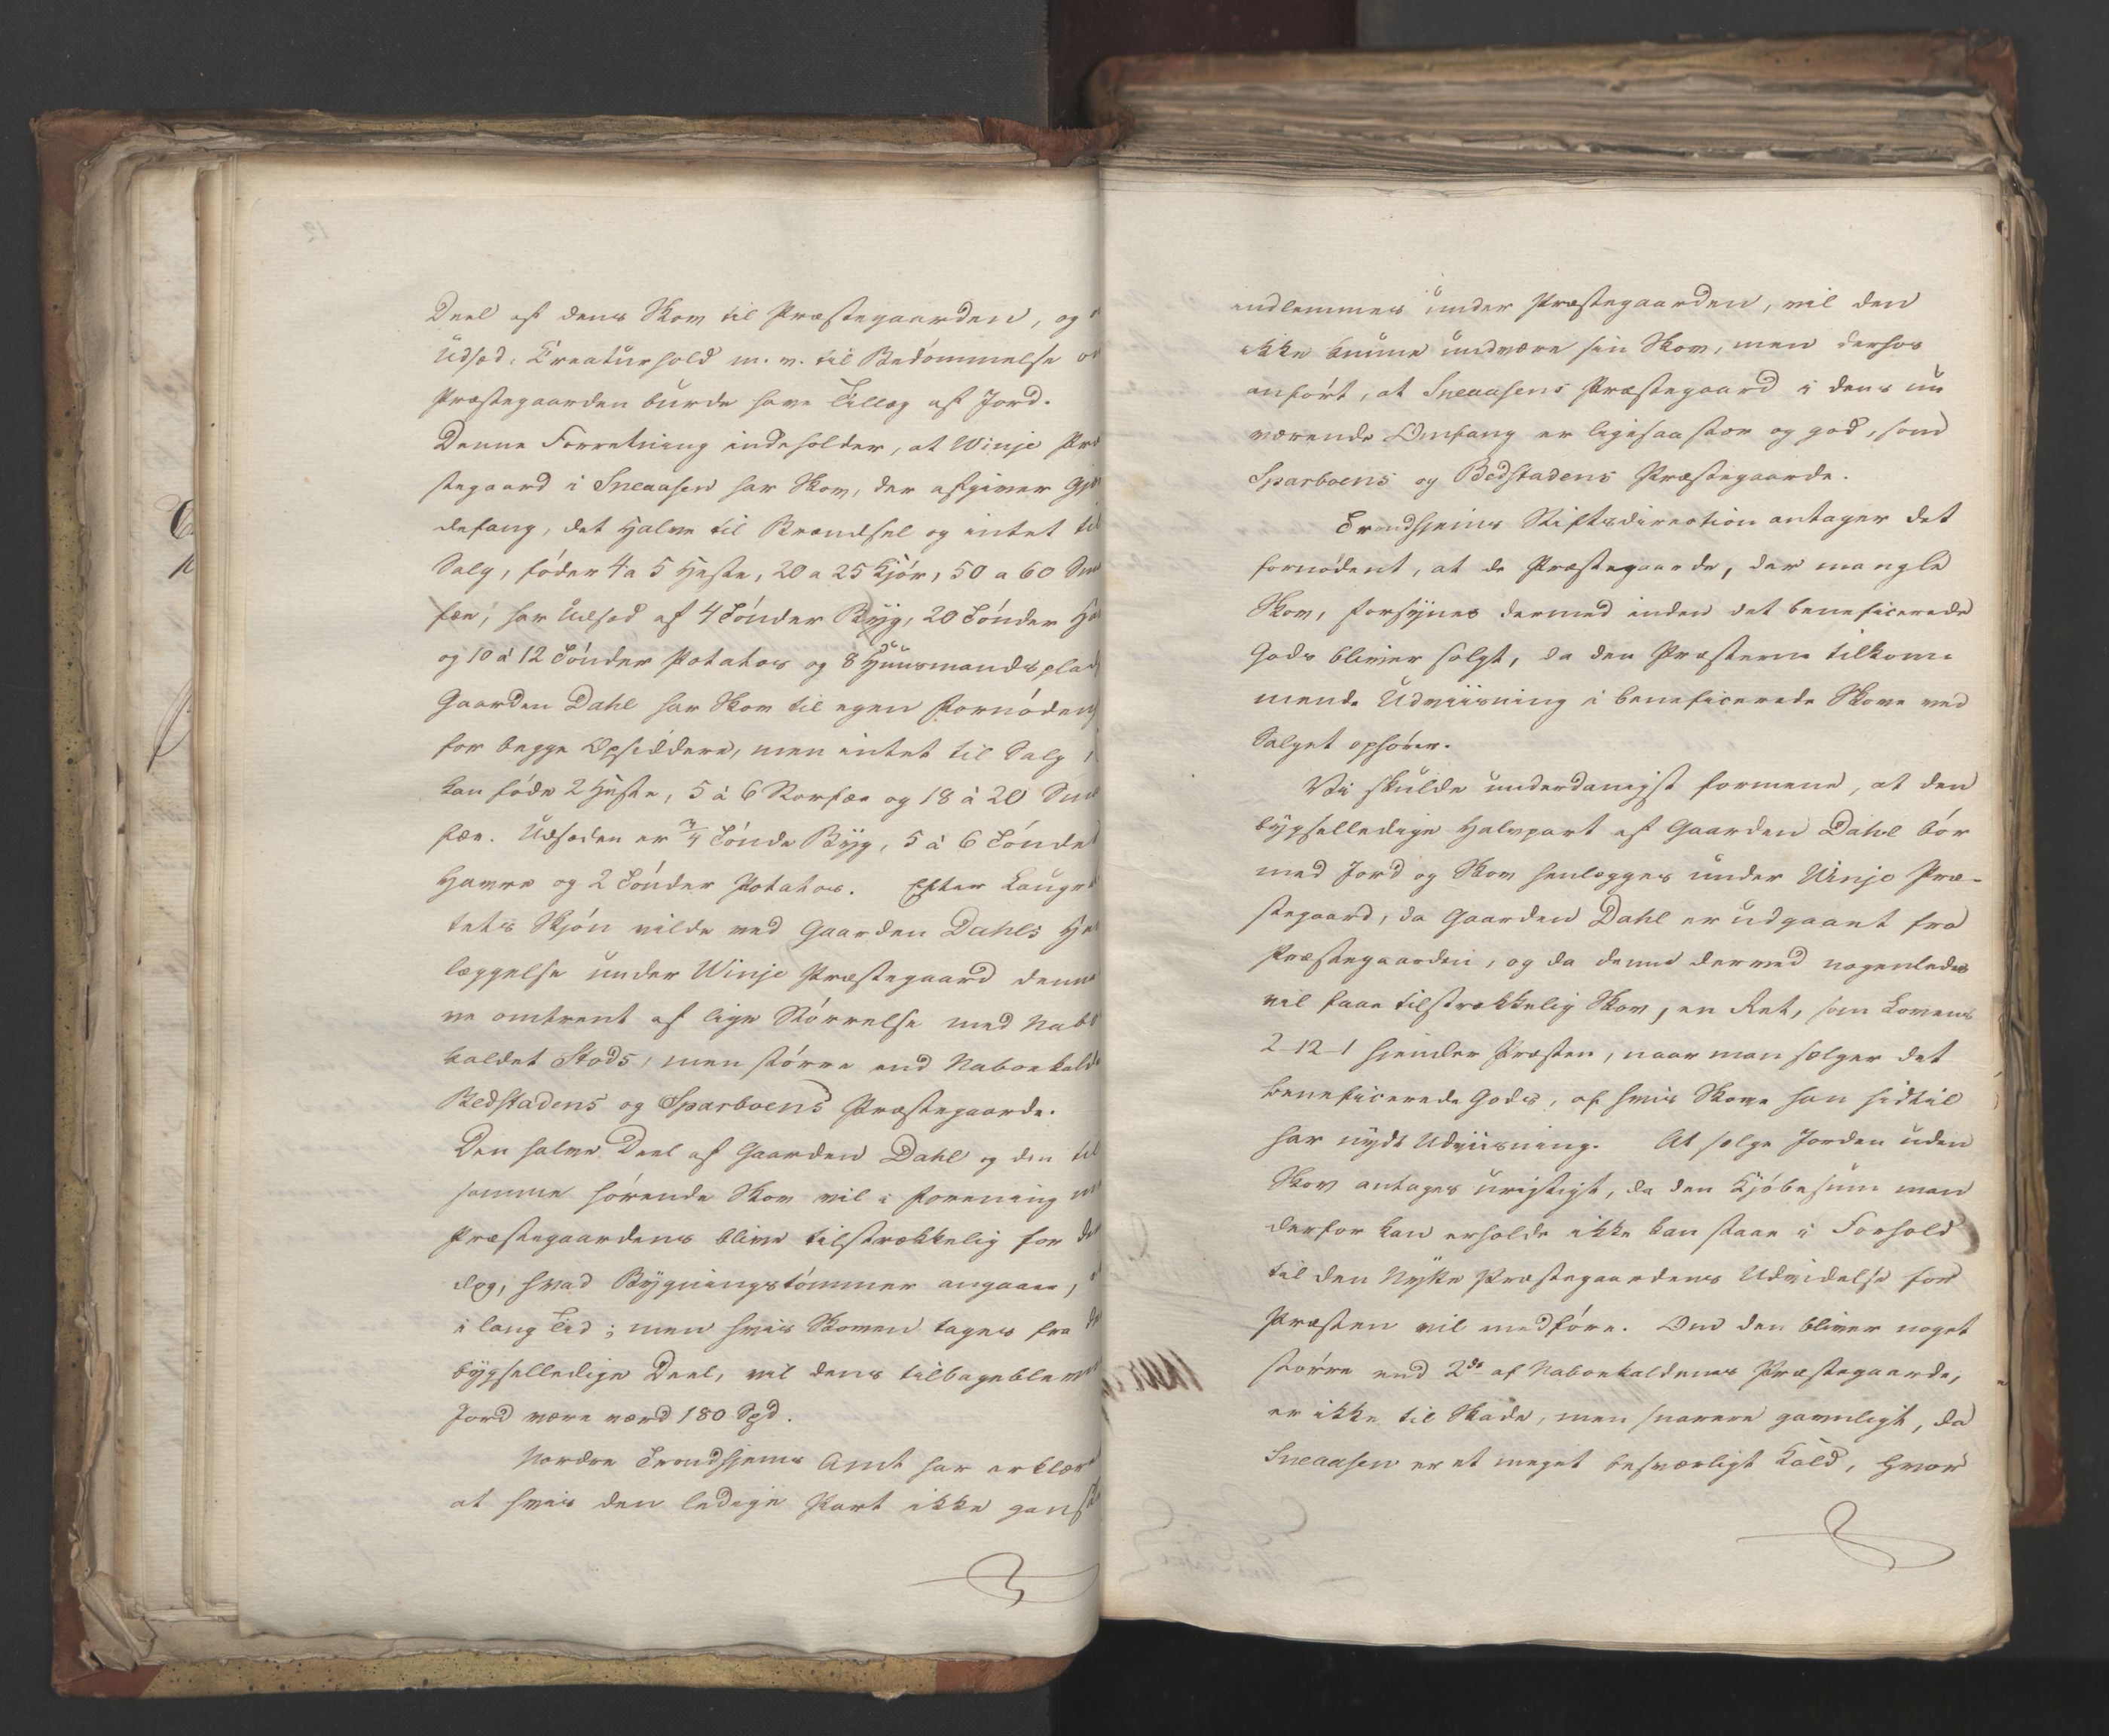 Deel af dens Skov til Præstegaarden, og
Udsæd, Creaturhold m. v. til Bedømmelse
Præstegaarden burde have Tillæg af Jord.
Denne Forretning indeholder, at Winje Præ
stegaard i Sneaasen har Skov, der afgiver Gjær
defang, det Halve til Brændsel og intet til
Salg, føder 4 a 5 Heste, 20 a 25 Kjør, 50 a 60 Smaa
fæe; har Udsæd af 4 Tønder Byg, 20 Tønder
og 10 à 12 Tønder Potatos og 8 Huusmandsplad
Gaarden Dahl har Skov til egen Fornøden
for begge Opsiddere, men intet til Salg
kan føde 2 Heste, 5 à 6 Storfæe og 18 à 20 Smaa
fæe. Udsæden er 3/4 Tønde Byg, 5 à 6 Tønder
Havre og 2 Tønder Potatos. Efter Laugret
tets Skjøn vilde ved Gaarden Dahls Hen
læggelse under Winje Præstegaard denne
ve omtrent af lige Størrelse med Nabo
kaldet Stods, men større end Naboekalde
Bedstadens og Sparboens Præstegaarde.
Den halve Deel af Gaarden Dahl og den til
samme hørende Skov vil i Forening
Præstegaardens blive tilstrækkelig for
dog, hvad Bygningstømmer angaaer,
i lang Tid; men hvis Skoven tages fra
bygselledige Deel, vil dens tilbageblevne
Jord være værd 180 Spd.
Nordre Trondhjems Amt har erklæret
at hvis den ledige Part ikke ganske
indlemmes under Præstegaarden, vil den
ikke kunne undvære sin Skov, men derhos
anført, at Sneaasens Præstegaard i dens nu
værende Omfang er ligesaa stor og god, som
Sparboens og Bedstadens Præstegaarde.
Trondhjems Stiftsdirection antager det
fornødent, at de Præstegaarde, der mangle
Skov, forsynes dermed inden det beneficerede
Gods bliver solgt, da den Præsterne tilkom-
mende Udviisning i beneficerede Skove ved
Salget ophører.
Vi skulde underdanigst formene, at den
bygselledige Halvpart af Gaarden Dahl bør
med Jord og Skov henlægges under Winje Præ-
stegaard, da Gaarden Dahl er udgaaet fra
Præstegaarden, og da denne derved nogenledes
vil faae tilstrækkelig Skov, en Ret, som Lovens
2-12-1 hjemler Præsten, naar man sælger det
beneficerede Gods, af hvis Skove han hidtil
har nydt Udviisning. At sælge Jorden uden
Skov antages urigtigt, da den Kjøbesum man
derfor kan erholde ikke kan staae i Forhold
til den Nytte Præstegaardens Udvidelse for
Præsten vil medføre. Om den bliver noget
større end 2de af Naboekaldenes Præstegaarde,
er ikke til Skade, men snarere gavnligt, da
Sneaasen er et meget besværligt Kald, hvor